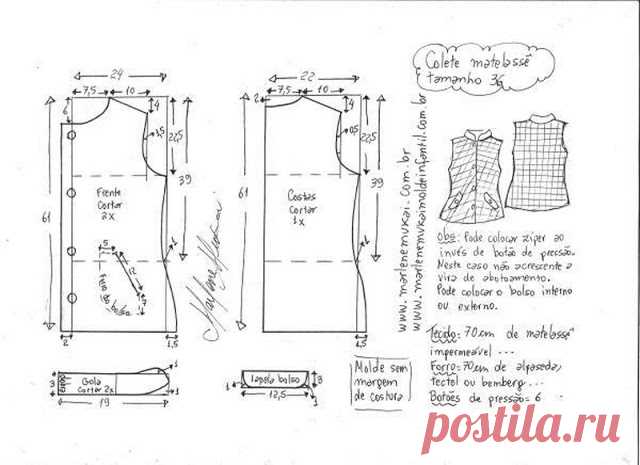 Colete matelassê
tamanho 36
24
7,5 10
6
4
3,5
22,5
39
61
Frente
Cortar
2x
5
12
7
bolso
1
2
1,5
22
7,5 10
2
4
0,5
22,5
39
61
Costas
Cortar
1x
1
1,5
Marlene Mukai
www.marlenemukai.com.br
www.marlenemukaimoldeinfantil.com.br
obs: Pode colocar zíper ao
invés de botão de pressão.
Neste caso não acrescente a
vira de abotoamento.
Pode colocar o bolso interno
ou externo.
Tecido: 70cm de matelassê
impermeável ...
Forro: 70cm de alpaseda,
tectel ou bemberg...
Botões de pressão = 6
3
dobra
Gola
Cortar 2x
1
1
19
lapela bolso
3
1
1
12,5
Molde sem
margem
de costura
postila.ru